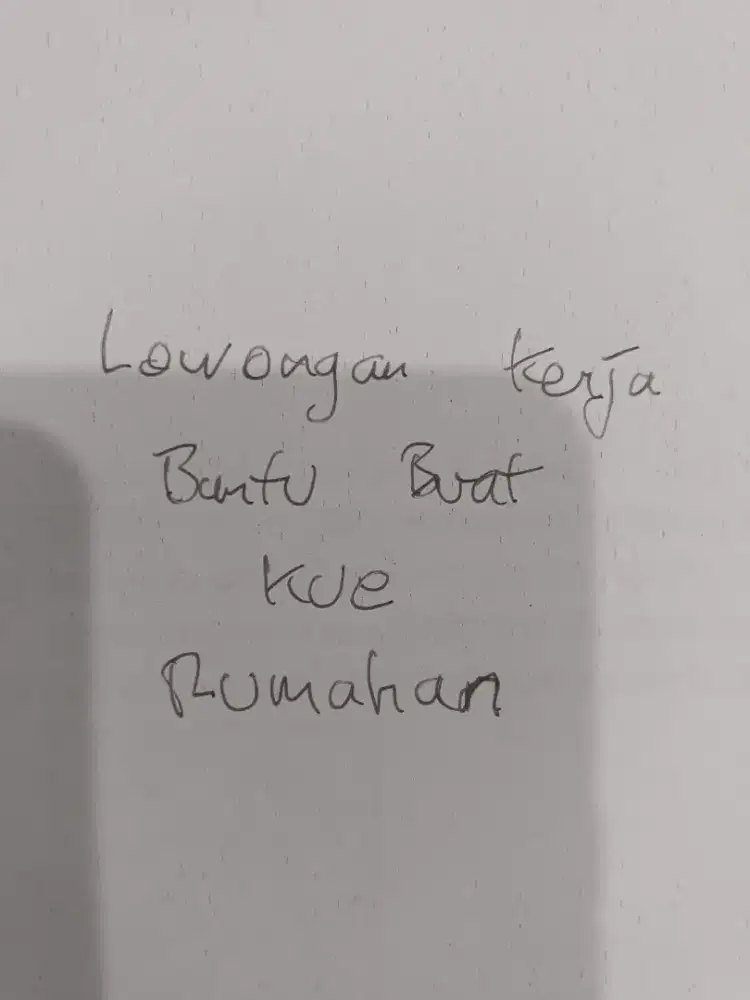 Lowongan Kerja
Bantu Buat
Kue
Rumahan